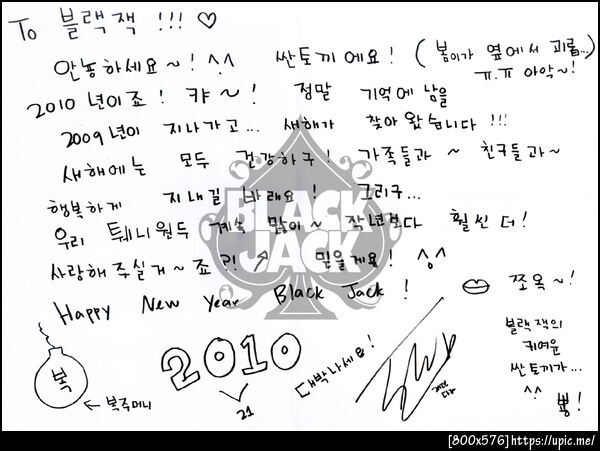 To 블랙잭 !!! ♡
안뇽하세요~! ^.^ 싼토끼에요! (봄이가 옆에서 괴롭...
ㅠ.ㅠ 아악~!
2010년이죠! 캬~! 정말 기억에 남을
2009년이 지나가고... 새해가 찾아왔습니다!!!
새해에는 모두 건강하구! 가족들과~ 친구들과~
행복하게 지내길 바래요! 그리구...
우리 퉤니원두 계속 많이~ 작년보다 훨씬 더!
사랑해주실거~죠?! 믿을게요! ^.^
Happy New Year Black Jack!
쪼옥~!
BLACK JACK
복
← 복주머니
2010
21
대박나세요!
블랙잭의
귀여운
싼토끼가...
^^
뿅!
[800x576] https://upic.me/